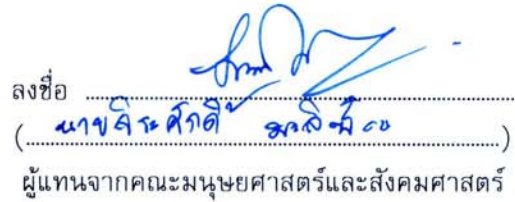 ลงชื่อ
(นายจิระศักดิ์)
ผู้แทนจากคณะมนุษยศาสตร์และสังคมศาสตร์